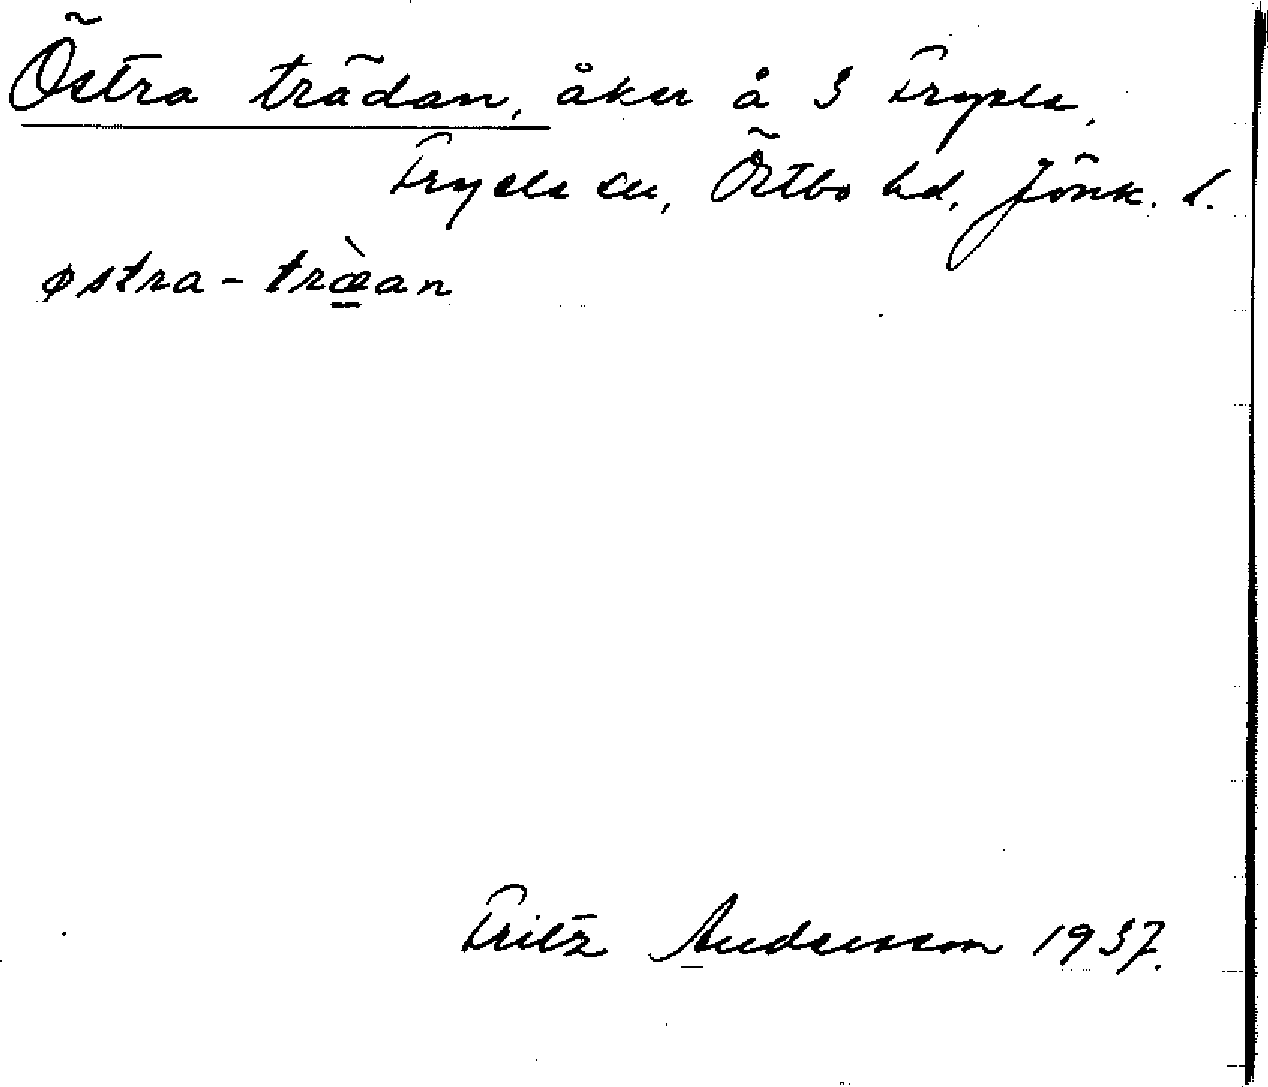 Östra trädan, åker å 3 Fryele,
Fryele sn, Östbo hd, Jönk. l.
østra - træ̀an
Fritz Andersson 1937.